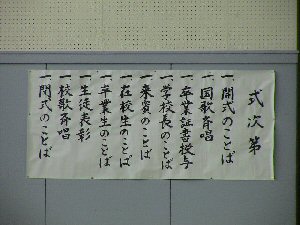 式次第
一 開式のことば
一 国歌斉唱
一 卒業証書授与
一 学校長のことば
一 来賓のことば
一 在校生のことば
一 卒業生のことば
一 生徒表彰
一 校歌斉唱
一 閉式のことば